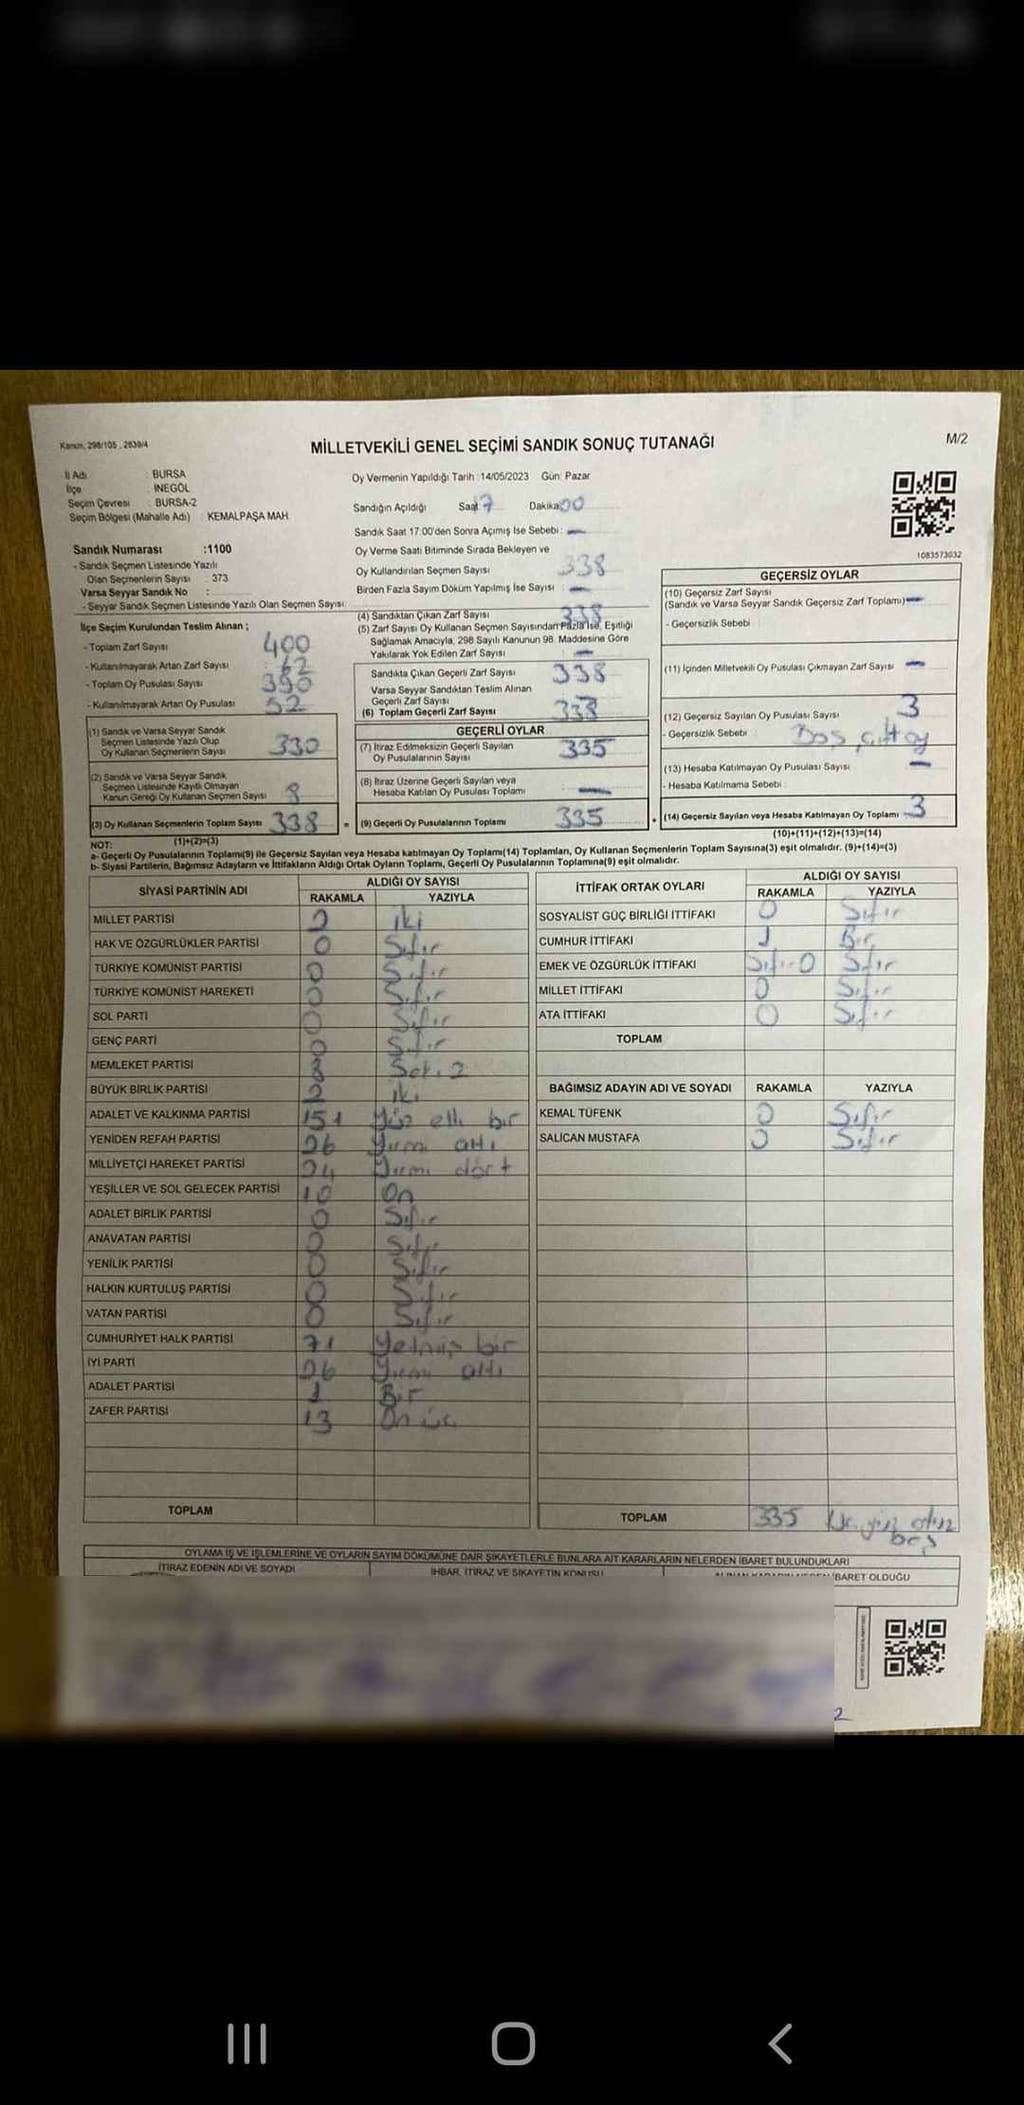 Kanun: 298/105 , 2839/4
MİLLETVEKİLİ GENEL SEÇİMİ SANDIK SONUÇ TUTANAĞI
M/2
İl Adı : BURSA
İlçe : İNEGÖL
Seçim Çevresi : BURSA-2
Seçim Bölgesi (Mahalle Adı) : KEMALPAŞA MAH.
Oy Vermenin Yapıldığı Tarih :14/05/2023 Gün: Pazar
Sandığın Açıldığı Saat 17 Dakika 00
Sandık Saat 17:00'den Sonra Açımış İse Sebebi: —
Oy Verme Saati Bitiminde Sırada Bekleyen ve
Oy Kullandırılan Seçmen Sayısı 338
Birden Fazla Sayım Döküm Yapılmış İse Sayısı : —
1083573032
Sandık Numarası :1100
- Sandık Seçmen Listesinde Yazılı
Olan Seçmenlerin Sayısı : 373
Varsa Seyyar Sandık No :
- Seyyar Sandık Seçmen Listesinde Yazılı Olan Seçmen Sayısı:
İlçe Seçim Kurulundan Teslim Alınan ;
- Toplam Zarf Sayısı 400
- Kullanılmayarak Artan Zarf Sayısı : 62
- Toplam Oy Pusulası Sayısı 390
- Kullanılmayarak Artan Oy Pusulası 52
(1) Sandık ve Varsa Seyyar Sandık
Seçmen Listesinde Yazılı Olup
Oy Kullanan Seçmenlerin Sayısı 330
(2) Sandık ve Varsa Seyyar Sandık
Seçmen Listesinde Kayıtlı Olmayan
Kanun Gereği Oy Kullanan Seçmen Sayısı 8
(3) Oy Kullanan Seçmenlerin Toplam Sayısı 338
(4) Sandıktan Çıkan Zarf Sayısı 338
(5) Zarf Sayısı Oy Kullanan Seçmen Sayısından Fazla İse, Eşitliği
Sağlamak Amacıyla, 298 Sayılı Kanunun 98. Maddesine Göre
Yakılarak Yok Edilen Zarf Sayısı : —
Sandıkta Çıkan Geçerli Zarf Sayısı 338
Varsa Seyyar Sandıktan Teslim Alınan
Geçerli Zarf Sayısı
(6) Toplam Geçerli Zarf Sayısı 338
GEÇERLİ OYLAR
(7) İtiraz Edilmeksizin Geçerli Sayılan
Oy Pusulalarının Sayısı 335
(8) İtiraz Üzerine Geçerli Sayılan veya
Hesaba Katılan Oy Pusulası Toplamı —
= (9) Geçerli Oy Pusulalarının Toplamı 335
GEÇERSİZ OYLAR
(10) Geçersiz Zarf Sayısı
(Sandık ve Varsa Seyyar Sandık Geçersiz Zarf Toplamı) —
- Geçersizlik Sebebi :
(11) İçinden Milletvekili Oy Pusulası Çıkmayan Zarf Sayısı —
(12) Geçersiz Sayılan Oy Pusulası Sayısı 3
- Geçersizlik Sebebi : Boş, çift oy
(13) Hesaba Katılmayan Oy Pusulası Sayısı —
- Hesaba Katılmama Sebebi :
+ (14) Geçersiz Sayılan veya Hesaba Katılmayan Oy Toplamı 3
NOT: (1)+(2)=(3)
(10)+(11)+(12)+(13)=(14)
a- Geçerli Oy Pusulalarının Toplamı(9) ile Geçersiz Sayılan veya Hesaba katılmayan Oy Toplamı(14) Toplamları, Oy Kullanan Seçmenlerin Toplam Sayısına(3) eşit olmalıdır. (9)+(14)=(3)
b- Siyasi Partilerin, Bağımsız Adayların ve İttifakların Aldığı Ortak Oyların Toplamı, Geçerli Oy Pusulalarının Toplamına(9) eşit olmalıdır.
SİYASİ PARTİNİN ADI ALDIĞI OY SAYISI
RAKAMLA YAZIYLA
MİLLET PARTİSİ 2 iki
HAK VE ÖZGÜRLÜKLER PARTİSİ 0 Sıfır
TÜRKİYE KOMÜNİST PARTİSİ 0 Sıfır
TÜRKİYE KOMÜNİST HAREKETİ 0 Sıfır
SOL PARTİ 0 Sıfır
GENÇ PARTİ 0 Sıfır
MEMLEKET PARTİSİ
BÜYÜK BİRLİK PARTİSİ 2 iki
ADALET VE KALKINMA PARTİSİ 151 Yüz elli bir
YENİDEN REFAH PARTİSİ 26 Yirmi altı
MİLLİYETÇİ HAREKET PARTİSİ 24 Yirmi dört
YEŞİLLER VE SOL GELECEK PARTİSİ 10 On
ADALET BİRLİK PARTİSİ 0 Sıfır
ANAVATAN PARTİSİ 0 Sıfır
YENİLİK PARTİSİ 0 Sıfır
HALKIN KURTULUŞ PARTİSİ 0 Sıfır
VATAN PARTİSİ 0 Sıfır
CUMHURİYET HALK PARTİSİ 71 Yetmiş bir
İYİ PARTİ 26 Yirmi altı
ADALET PARTİSİ 1 Bir
ZAFER PARTİSİ 13 On üç
TOPLAM
İTTİFAK ORTAK OYLARI ALDIĞI OY SAYISI
RAKAMLA YAZIYLA
SOSYALİST GÜÇ BİRLİĞİ İTTİFAKI 0 Sıfır
CUMHUR İTTİFAKI 1 Bir
EMEK VE ÖZGÜRLÜK İTTİFAKI Sıfır 0 Sıfır
MİLLET İTTİFAKI 0 Sıfır
ATA İTTİFAKI 0 Sıfır
TOPLAM
BAĞIMSIZ ADAYIN ADI VE SOYADI RAKAMLA YAZIYLA
KEMAL TÜFENK 0 Sıfır
SALİCAN MUSTAFA 0 Sıfır
TOPLAM 335 üç yüz otuz beş
OYLAMA İŞ VE İŞLEMLERİNE VE OYLARIN SAYIM DÖKÜMÜNE DAİR ŞİKAYETLERLE BUNLARA AİT KARARLARIN NELERDEN İBARET BULUNDUKLARI
İTİRAZ EDENİN ADI VE SOYADI İHBAR, İTİRAZ VE ŞİKAYETİN KONUSU İBARET OLDUĞU
2